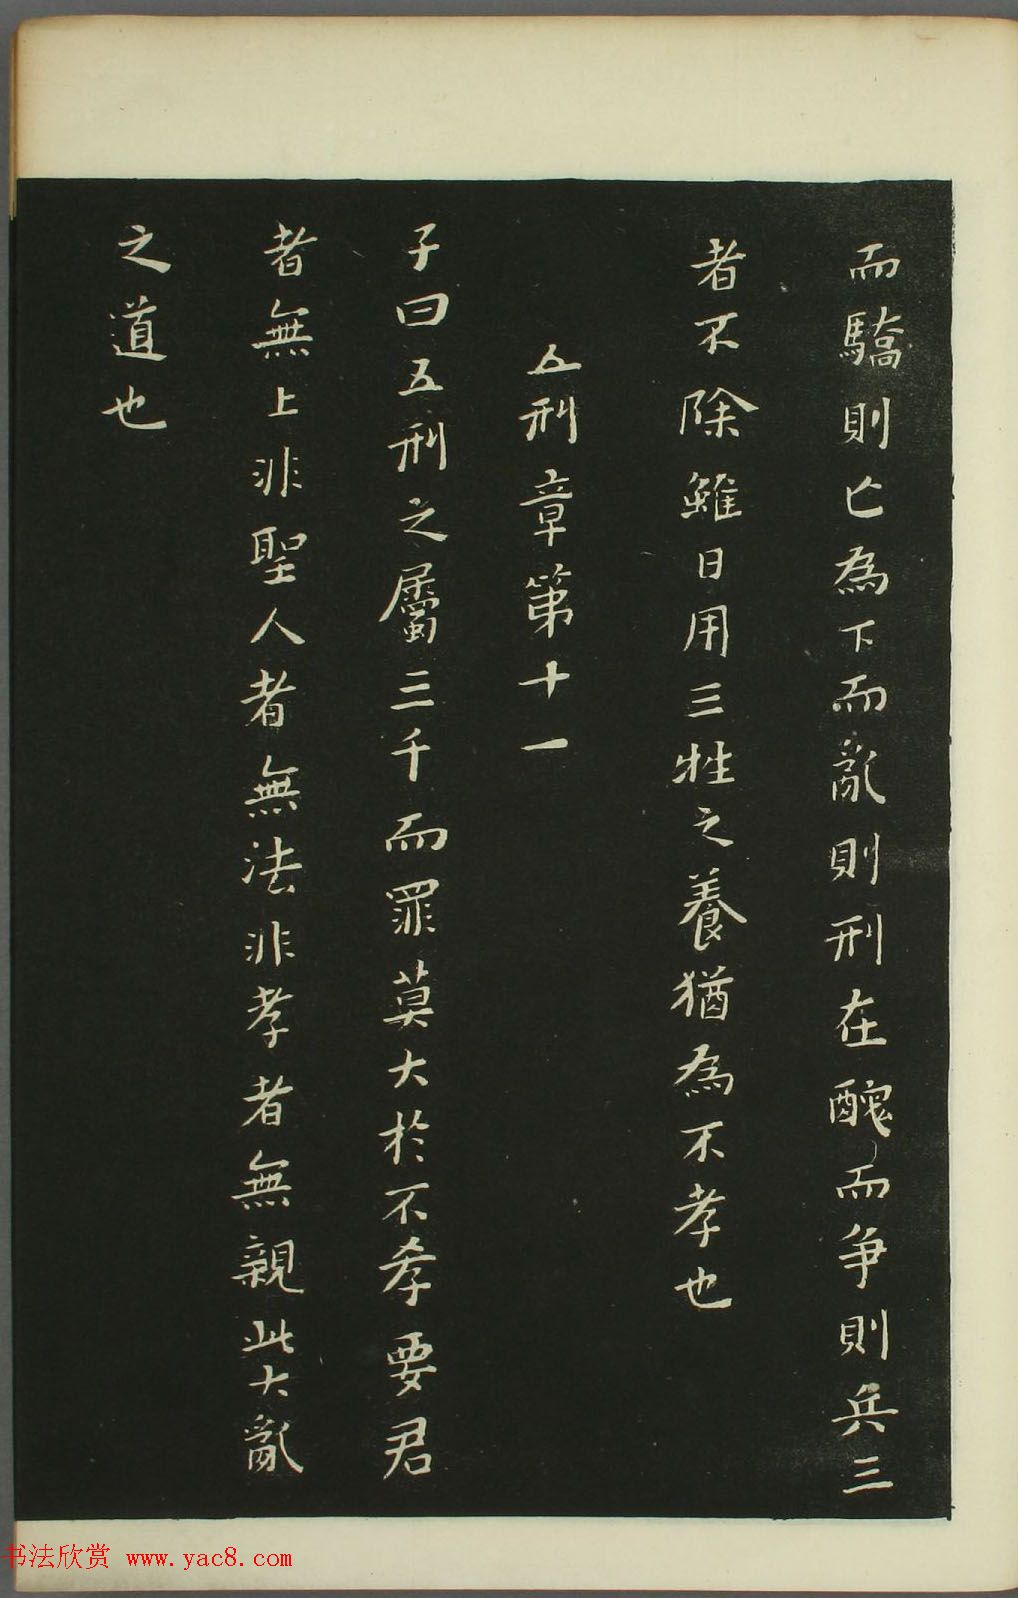 而驕則亡為下而亂則刑在醜而爭則兵三
者不除雖日用三牲之養猶為不孝也
五刑章第十一
子曰五刑之屬三千而罪莫大於不孝要君
者無上非聖人者無法非孝者無親此大亂
之道也
书法欣赏 www.yac8.com